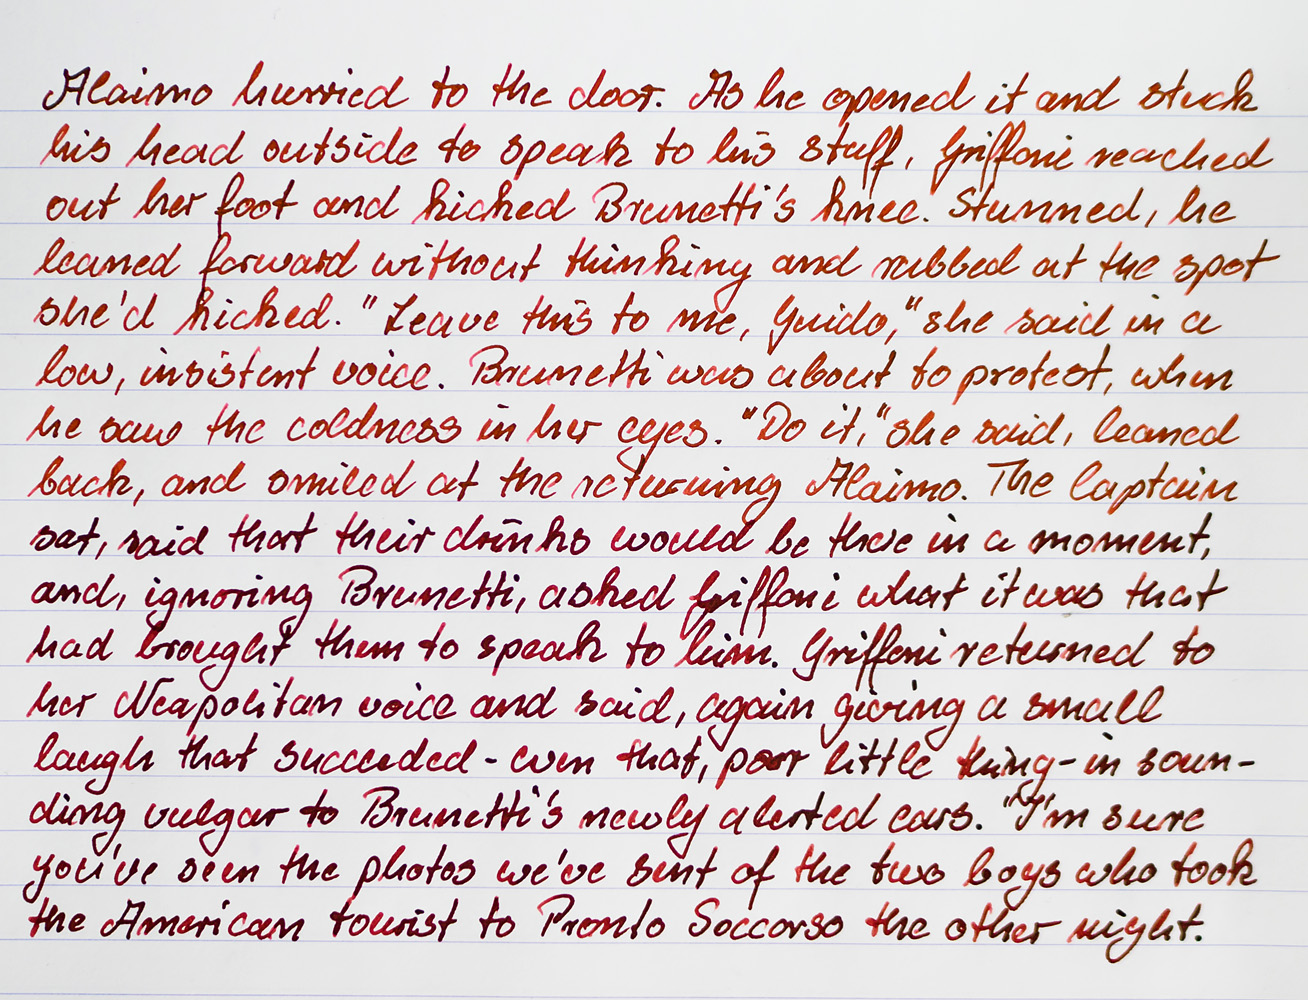 Alaimo hurried to the door. As he opened it and stuck
his head outside to speak to his staff, Griffoni reached
out her foot and kicked Brunetti's knee. Stunned, he
leaned forward without thinking and rubbed at the spot
she'd kicked. "Leave this to me, Guido," she said in a
low, insistent voice. Brunetti was about to protest, when
he saw the coldness in her eyes. "Do it," she said, leaned
back, and smiled at the returning Alaimo. The Captain
sat, said that their drinks would be there in a moment,
and, ignoring Brunetti, asked Griffoni what it was that
had brought them to speak to him. Griffoni returned to
her Neapolitan voice and said, again giving a small
laugh that succeeded - even that, poor little thing - in soun-
ding vulgar to Brunetti's newly alerted ears. "I'm sure
you've seen the photos we've sent of the two boys who took
the American tourist to Pronto Soccorso the other night.